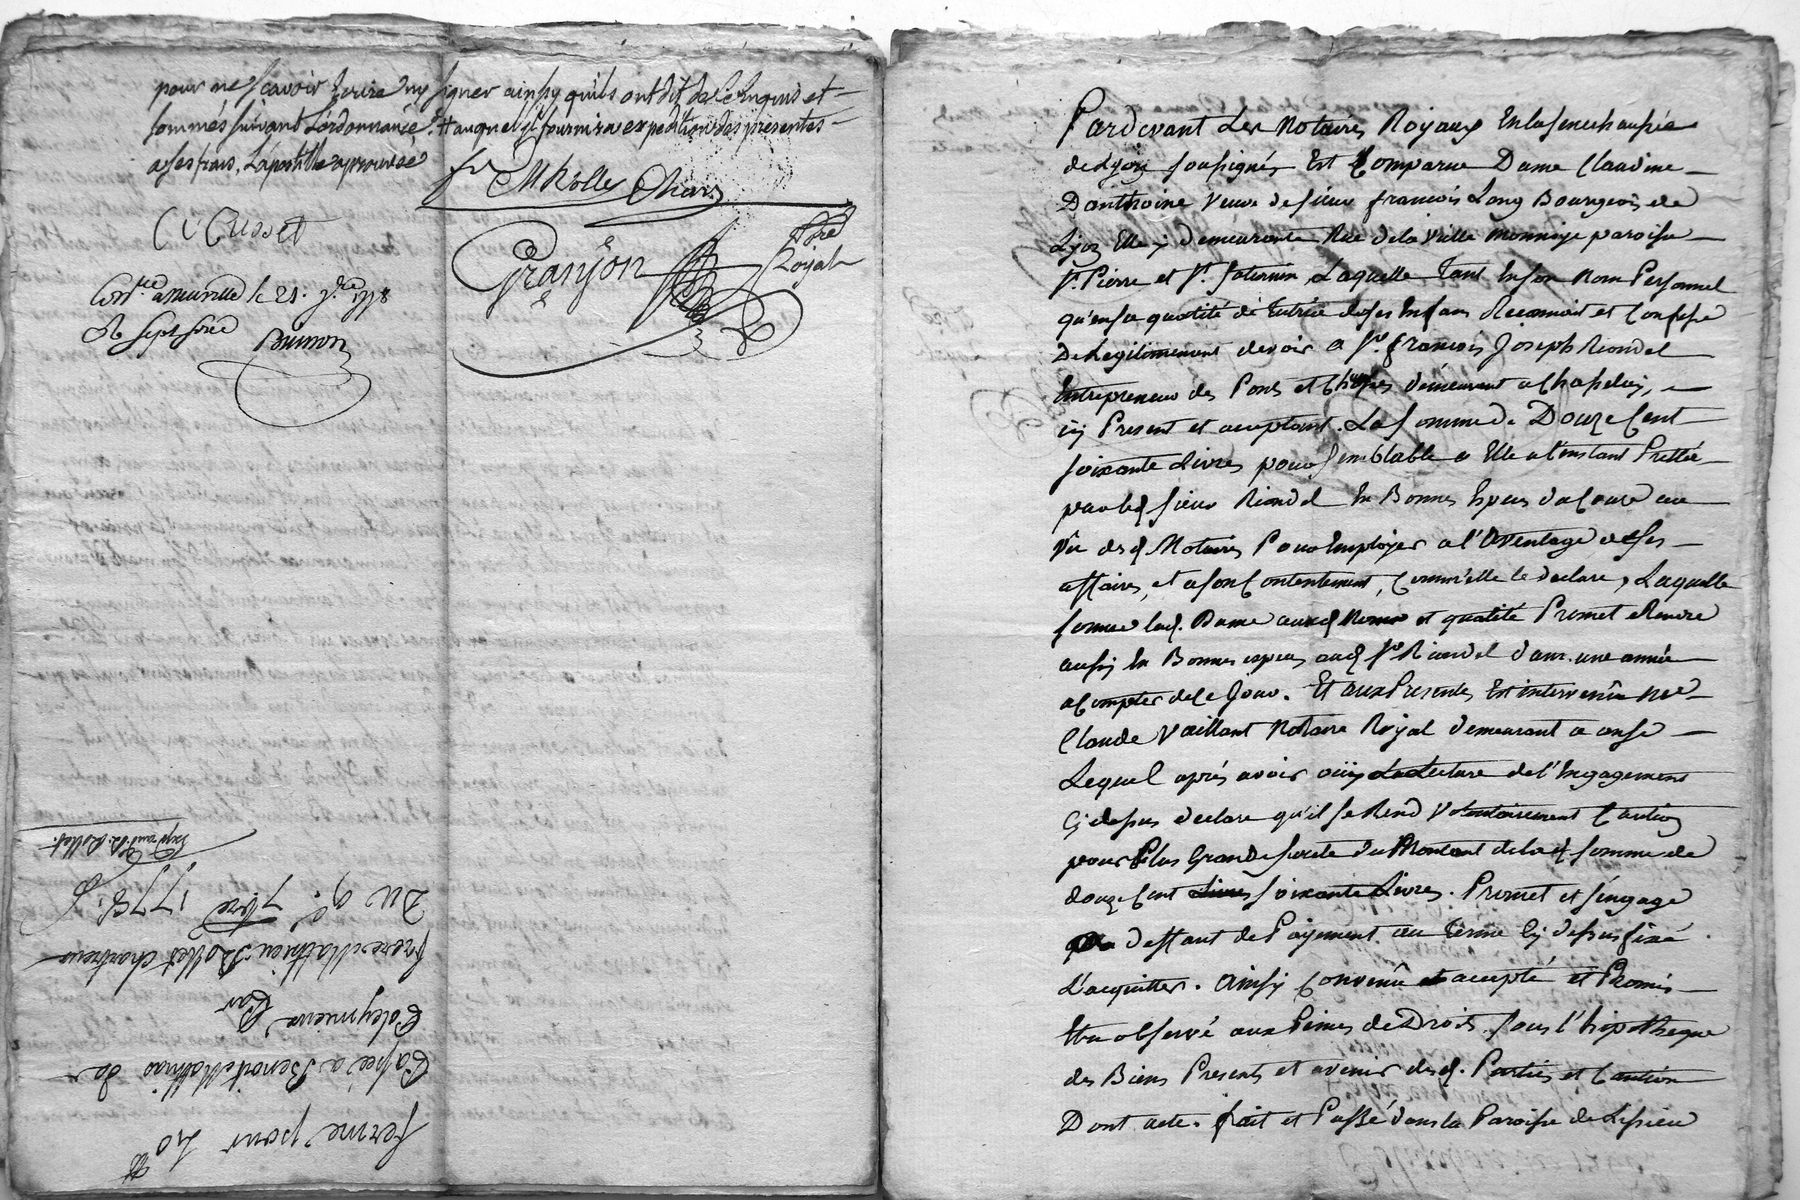 pour ne sçavoir Ecrire ny signer ainsy qu'ils ont dit de ce Enquis et
sommés suivant L'ordonnance. # auquel il fournira expedition des presentes
a ses frais, L'apostille approuvée
fr M Rollet Chars
C Cusset
Granjon nore Royal
Conlle a Neuville le 21. 7bre 1778
R sept sols
Brunon
ferme pour 40 #
Passée a Benoit Mathias de
Poleymieux Par
frere Mathieu Rollet chartreux
Du 9e. 7bre 1778.
Pardevant Les Notaires Royaux En la senechaussée
de Lyon soussignés Est Comparue Dame Claudine
Danthoine Veuve de sieur francois Lang Bourgeois de
Lyon Elle y demeurante Rue de la Vielle monnoye paroisse
St. Pierre et St. Saturnin Laquelle Tant En son Nom Personnel
qu'en sa qualité de Tutrice de ses Enfans Reconnoit et Confesse
De Legitimement devoir a Sr. francois Joseph Riondel
Entrepreneur des Ponts et Chssées demeurant a
icy Present et acceptant. La somme de Douze Cent
soixante Livres pour semblable a Elle a l'instant Prettée
par led sieur Riondel En Bonnes Espèces au Cours au
vû desd Notaires Pour Employer a l'Aventage de ses
affaires, et a son Contentement, Comm'elle le declare, Laquelle
somme lad. Dame auxd Noms et qualité Promet Rendre
aussy En Bonnes especes aud Sr Riondel dans une année
a Compter de Ce Jour. Et aux Presentes Est intervenû Me
Claude Vaillant Notaire Royal demeurant a anse
Lequel aprés avoir oüy La Lecture de l'Engagement
Cy dessus declare qu'il se Rend Volontairement Caution
pour Plus Grande sureté du Montant de lad somme de
douze Cent Livres soixante Livres. Promet et s'engage
a deffaut de Payement au terme Cy dessus fixé
L'acquitter. Ainsy Convenû et accepté et Promis
Etre observé aux Peines de Droit sous l'hipotheque
des Biens Presents et avenir desd. Parties et Caution
Dont acte. fait et Passé dans la Paroisse de